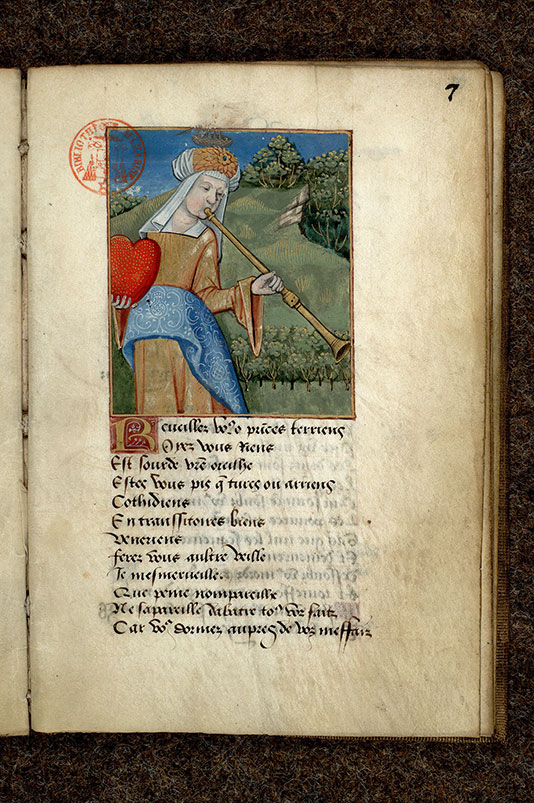 7
BIBLIOTH
Reueillez vo9 o prices terriens
Orez vous riens
Est sourde vre oreille
Estes vous pis q turcs ou arriens
Cothidiens
En transsitoires biens
Veneriens
Ferez vous aultre veille
Je mesmerveille.
Que peine nompareille
Ne sapareille dabatre to9 voz faitz
Car vo9 dormez aupres de voz meffaiz